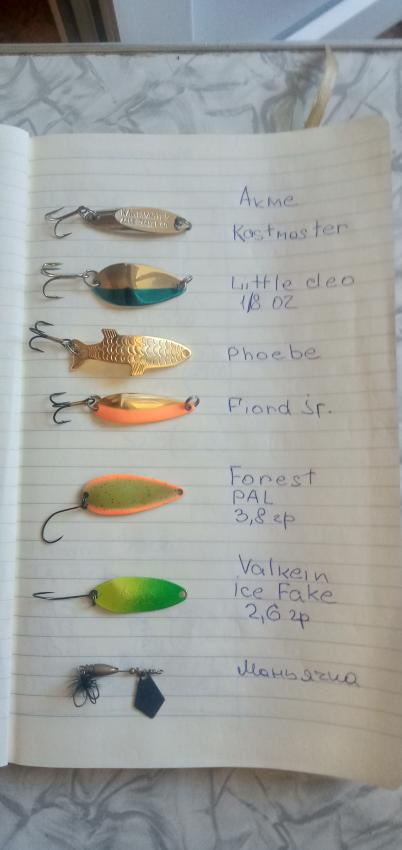 Акме
Kastmaster
Little cleo
1/8 OZ
Phoebe
Fiord jr.
Forest
PAL
3,8 гр
Valkein
ice Fake
2,6 гр
Маньячка